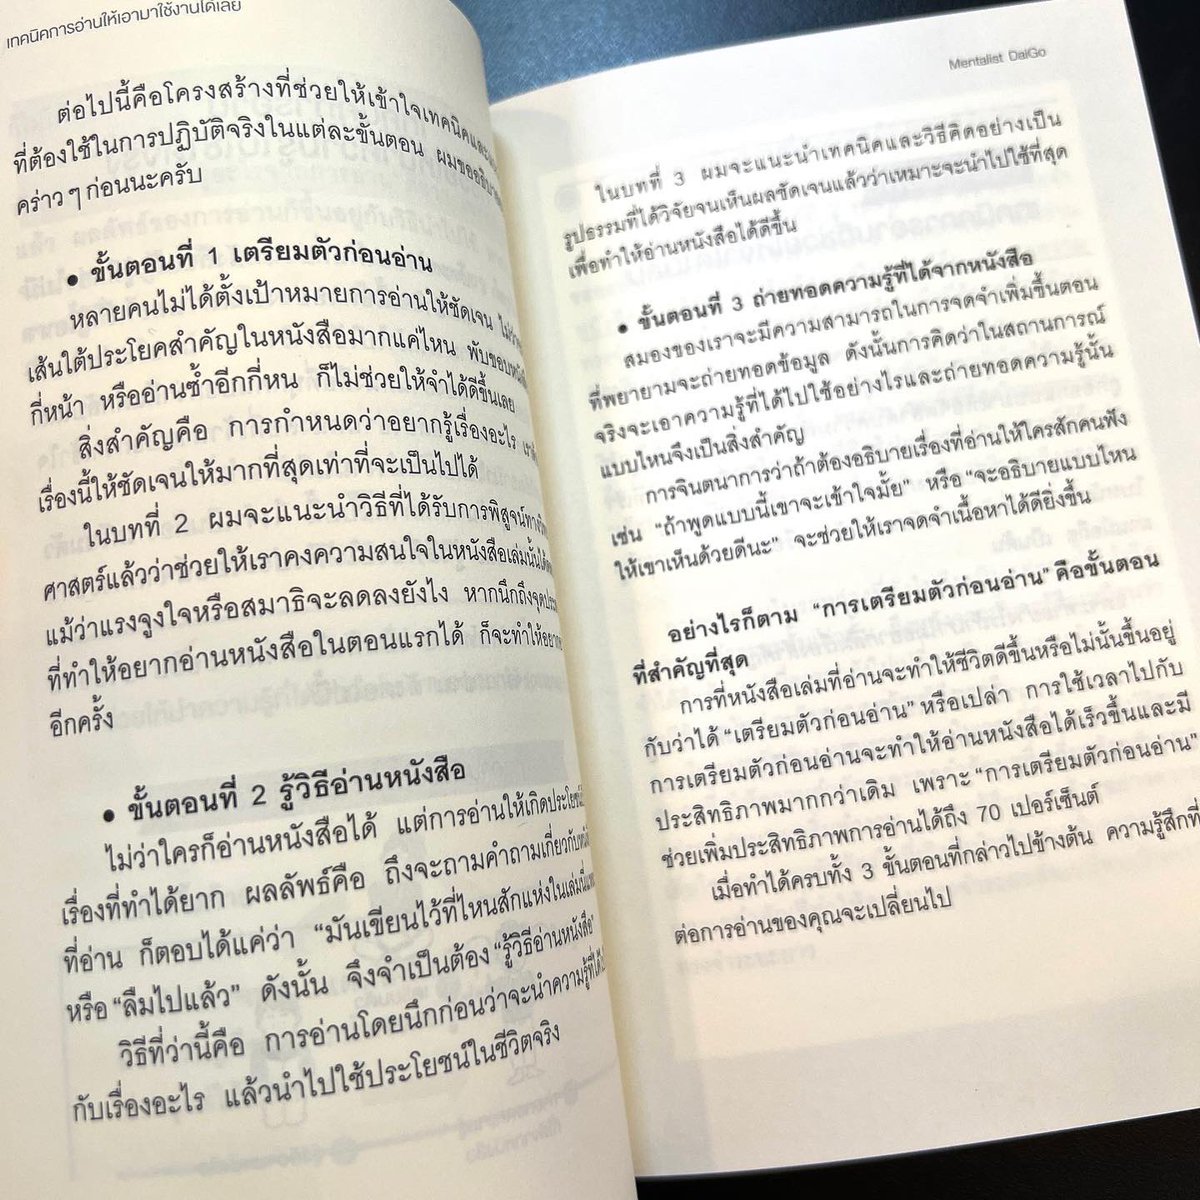 เทคนิคการอ่านให้เอามาใช้งานได้เลย
ต่อไปนี้คือโครงสร้างที่ช่วยให้เข้าใจเทคนิคและ
ที่ต้องใช้ในการปฏิบัติจริงในแต่ละขั้นตอน ผมขออธิบาย
คร่าว ๆ ก่อนนะครับ
• ขั้นตอนที่ 1 เตรียมตัวก่อนอ่าน
หลายคนไม่ได้ตั้งเป้าหมายการอ่านให้ชัดเจน ไม่ว่า
เส้นใต้ประโยคสำคัญในหนังสือมากแค่ไหน พับขอบหนังสือ
กี่หน้า หรืออ่านซ้ำอีกกี่หน ก็ไม่ช่วยให้จำได้ดีขึ้นเลย
สิ่งสำคัญคือ การกำหนดว่าอยากรู้เรื่องอะไร
เรื่องนี้ให้ชัดเจนให้มากที่สุดเท่าที่จะเป็นไปได้
ในบทที่ 2 ผมจะแนะนำวิธีที่ได้รับการพิสูจน์ทางวิทยา
ศาสตร์แล้วว่าช่วยให้เราคงความสนใจในหนังสือเล่มนั้นได้
แม้ว่าแรงจูงใจหรือสมาธิจะลดลงยังไง หากนึกถึงจุดประ
ที่ทำให้อยากอ่านหนังสือในตอนแรกได้ ก็จะทำให้อยาก
อีกครั้ง
• ขั้นตอนที่ 2 รู้วิธีอ่านหนังสือ
ไม่ว่าใครก็อ่านหนังสือได้ แต่การอ่านให้เกิดประโยชน์
เรื่องที่ทำได้ยาก ผลลัพธ์คือ ถึงจะถามคำถามเกี่ยวกับ
ที่อ่าน ก็ตอบได้แค่ว่า “มันเขียนไว้ที่ไหนสักแห่งในเล่มนี้แหละ
หรือ “ลืมไปแล้ว” ดังนั้น จึงจำเป็นต้อง “รู้วิธีอ่านหนังสือ”
วิธีที่ว่านี้คือ การอ่านโดยนึกก่อนว่าจะนำความรู้ที่ได้
กับเรื่องอะไร แล้วนำไปใช้ประโยชน์ในชีวิตจริง
Mentalist DaiGo
ในบทที่ 3 ผมจะแนะนำเทคนิคและวิธีคิดอย่างเป็น
รูปธรรมที่ได้วิจัยจนเห็นผลชัดเจนแล้วว่าเหมาะจะนำไปใช้ที่สุด
เพื่อทำให้อ่านหนังสือได้ดีขึ้น
• ขั้นตอนที่ 3 ถ่ายทอดความรู้ที่ได้จากหนังสือ
สมองของเราจะมีความสามารถในการจดจำเพิ่มขึ้นตอน
ที่พยายามจะถ่ายทอดข้อมูล ดังนั้นการคิดว่าในสถานการณ์
จริงจะเอาความรู้ที่ได้ไปใช้อย่างไรและถ่ายทอดความรู้นั้น
แบบไหนจึงเป็นสิ่งสำคัญ
การจินตนาการว่าถ้าต้องอธิบายเรื่องที่อ่านให้ใครสักคนฟัง
เช่น “ถ้าพูดแบบนี้เขาจะเข้าใจมั้ย” หรือ “จะอธิบายแบบไหน
ให้เขาเห็นด้วยดีนะ” จะช่วยให้เราจดจำเนื้อหาได้ดียิ่งขึ้น
อย่างไรก็ตาม “การเตรียมตัวก่อนอ่าน” คือขั้นตอน
ที่สำคัญที่สุด
การที่หนังสือเล่มที่อ่านจะทำให้ชีวิตดีขึ้นหรือไม่นั้นขึ้นอยู่
กับว่าได้ “เตรียมตัวก่อนอ่าน” หรือเปล่า การใช้เวลาไปกับ
การเตรียมตัวก่อนอ่านจะทำให้อ่านหนังสือได้เร็วขึ้นและมี
ประสิทธิภาพมากกว่าเดิม เพราะ “การเตรียมตัวก่อนอ่าน”
ช่วยเพิ่มประสิทธิภาพการอ่านได้ถึง 70 เปอร์เซ็นต์
เมื่อทำได้ครบทั้ง 3 ขั้นตอนที่กล่าวไปข้างต้น ความรู้สึกที่
ต่อการอ่านของคุณจะเปลี่ยนไป